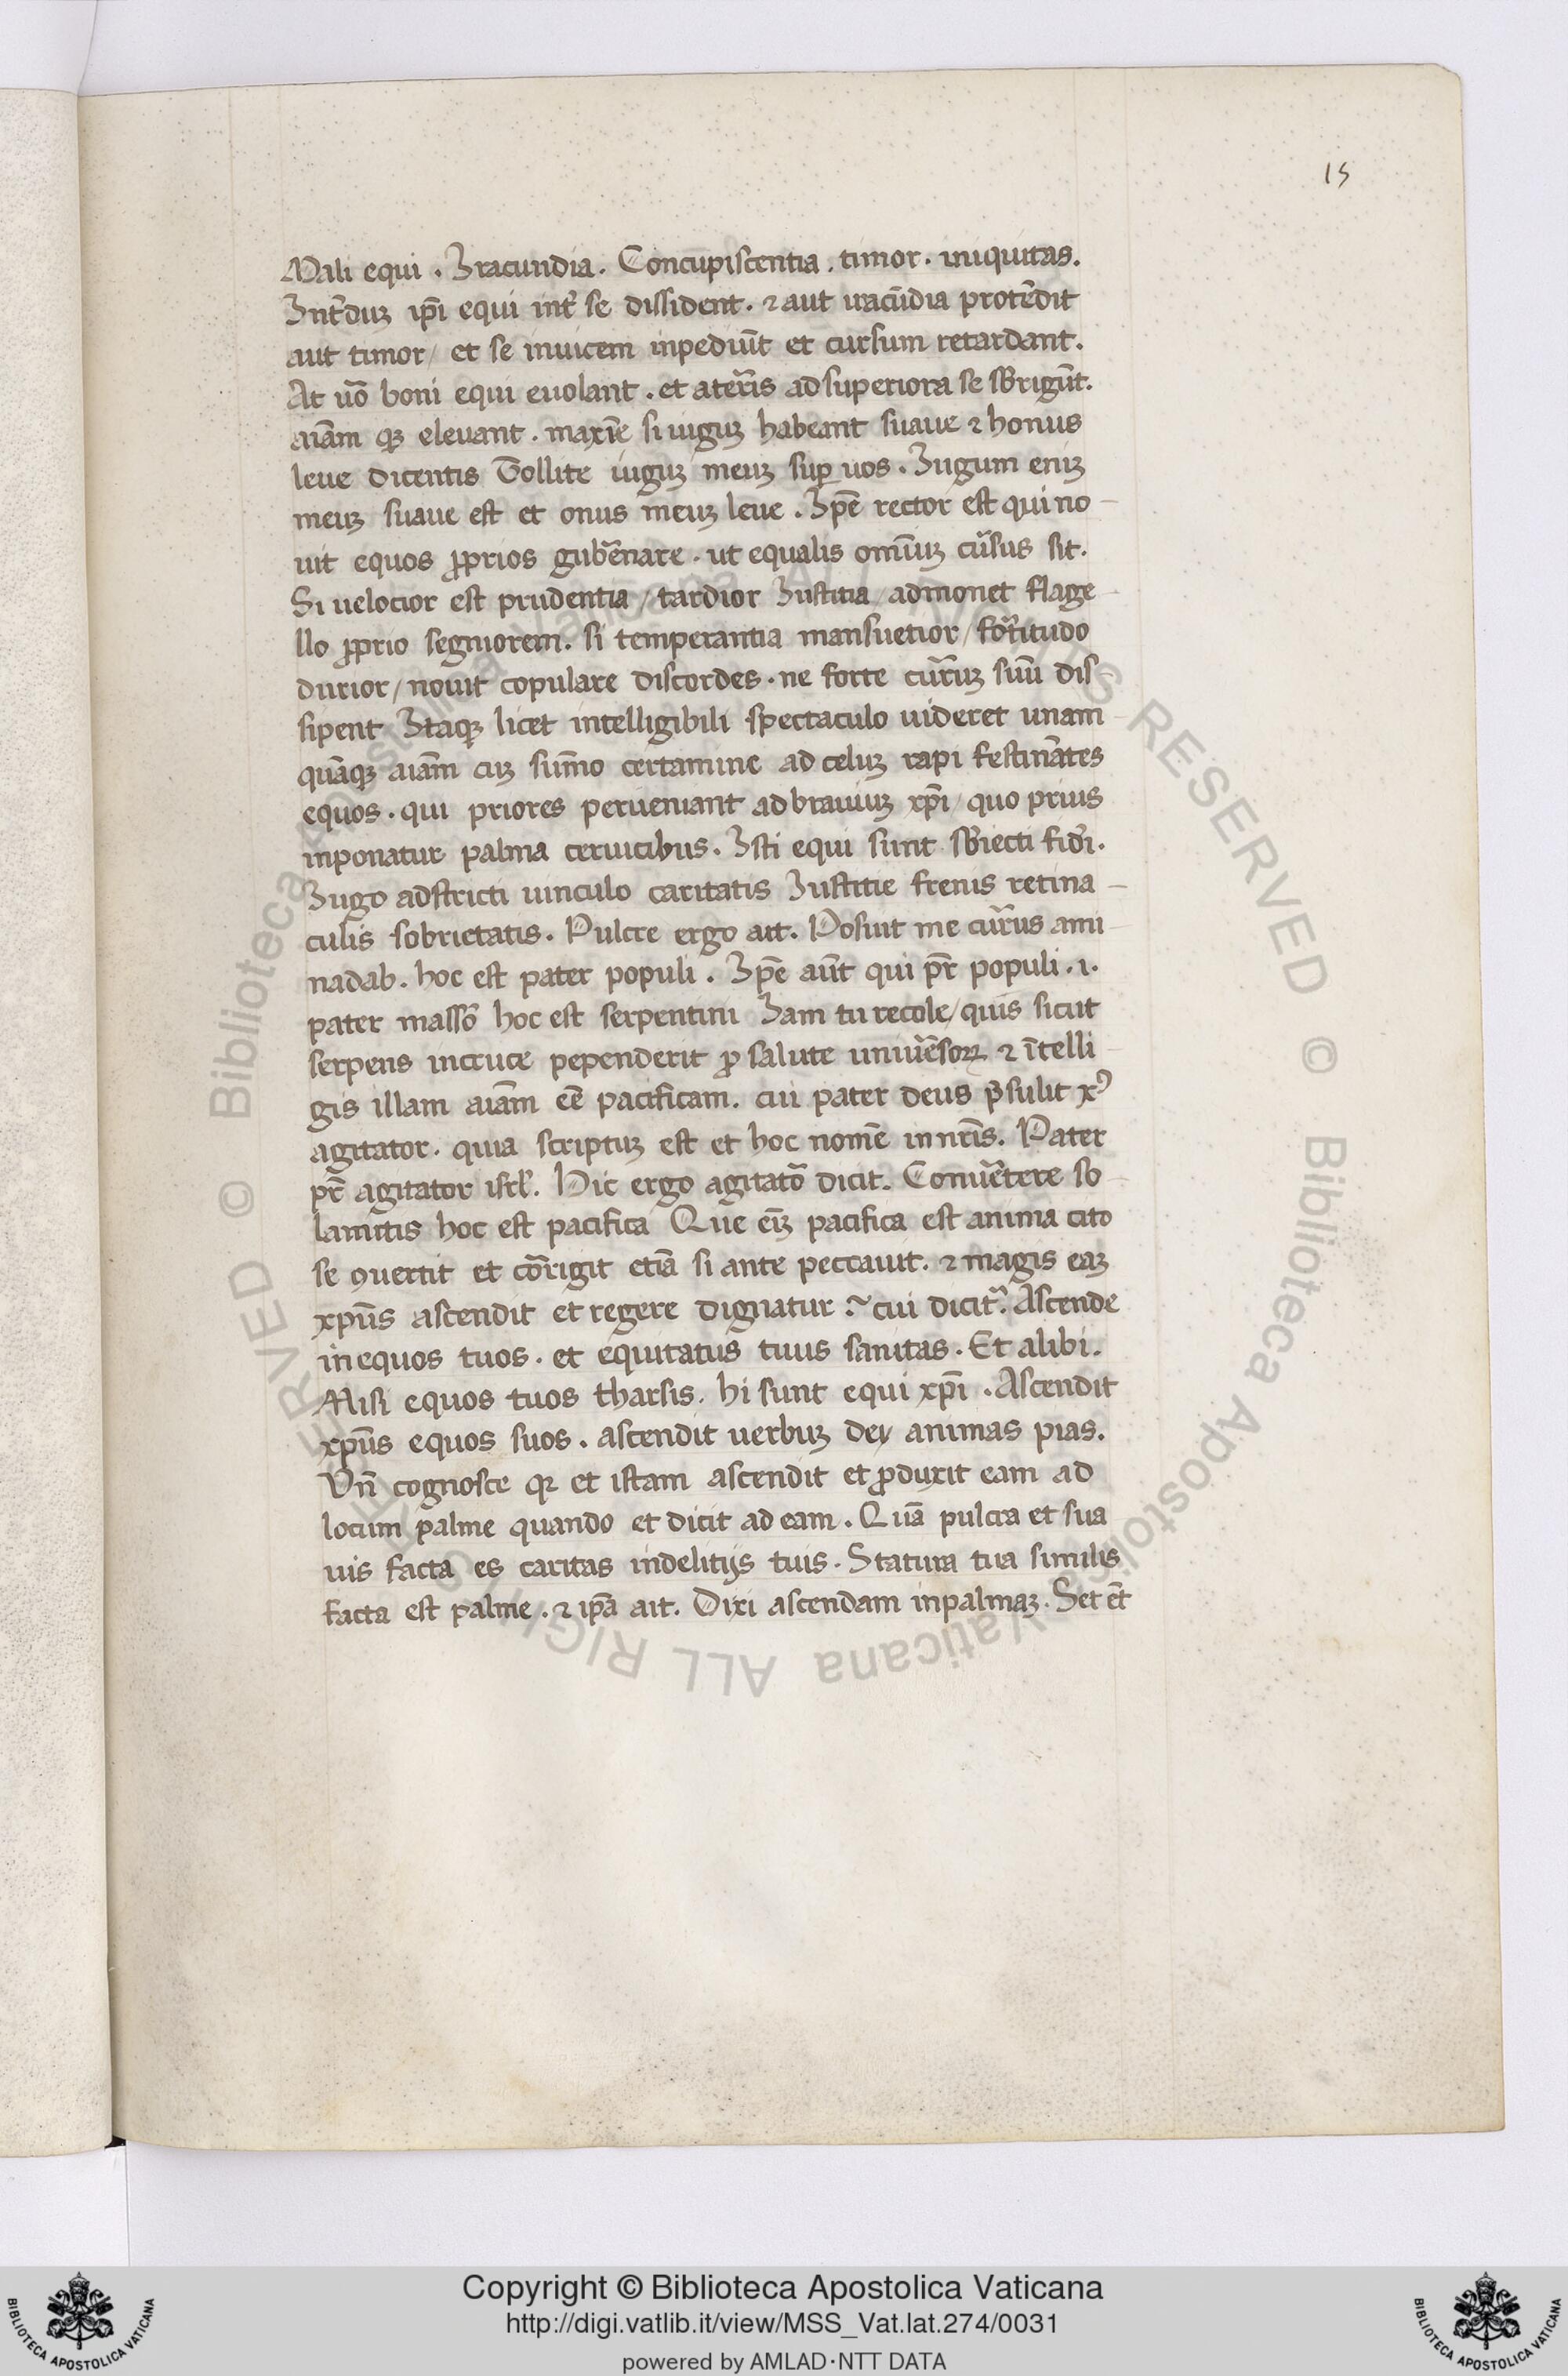 15
Mali equi . Iracundia . Concupiscentia . timor . iniquitas.
Int̄duꝫ ip̄i equi int̄ se dissident . ⁊ aut iracūdia protēdit
aut timor / et se inuicem inpediūt et cursum retardant.
At uō boni equi euolant . et a terr̄is ad superiora se sb̄rigūt.
aīam qꝫ eleuant . maxīe si iuguꝫ habeant suaue ⁊ honus
leue dicentis Tollite iuguꝫ meuꝫ suꝑ uos . Iugum eniꝫ
meuꝫ suaue est et onus meuꝫ leue . Ip̄e rector est qui no-
uit equos ꝓprios gub̄enare . ut equalis omīuꝫ cur̄sus sit.
Si uelocior est prudentia / tardior Iustitia / admonet flage-
llo ꝓprio segniorem . si temperantia mansuetior / fort̄itudo
durior / nouit copulare discordes . ne forte curr̄uꝫ suū dis-
sipent Itaqꝫ licet intelligibili spectaculo uideret unam-
quāqꝫ aīam cuꝫ sum̄o certamine ad celuꝫ rapi festinātes
equos . qui priores perueniant ad brauiuꝫ xp̄i / quo prius
inponatur palma ceruicibus . Isti equi sunt sb̄iecti fid̄i.
Iugo adstricti uinculo caritatis Iustitie frenis retina-
culis sobrietatis . Pulcre ergo ait . Posuit me curr̄us ami-
nadab . hoc est pater populi . Ip̄e aūt qui pr̄ populi . i.
pater massō hoc est serpentini Iam tu recole / quis sicut
serpens in cruce pependerit ꝓ salute uniuēsoꝝ ⁊ ītelli-
gis illam aīam eē pacificam . cui pater deus p̄sulit xꝰ
agitator . quia scriptuꝫ est et hoc nomē in nr̄is . Pater
pr̄ agitator isrl̄ . Hic ergo agitatō dicit . Conuēтere so-
lamītis hoc est pacifica Que eīꝫ pacifica est anima cito
se ꝯuertit et cor̄rigit etiā si ante peccauit . ⁊ magis eaꝫ
xpūs ascendit et regere dignatur : cui dicit᷑ . Ascende
in equos tuos . et equitatus tuus sanitas . Et alibi.
Misi equos tuos tharsis . hi sunt equi xp̄i . Ascendit
xpūs equos suos . ascendit uerbuꝫ dei animas pias.
Vn̄ cognosce qꝛ et istam ascendit et ꝓduxit eam ad
locum palme quando et dicit ad eam . Quā pulcra et sua
uis facta es caritas in delitijs tuis . Statura tua similis
facta est palme . ⁊ ip̄a ait . Dixi ascendam in palmaꝫ . Set et̄
© Biblioteca Apostolica Vaticana ALL RIGHTS RESERVED
Copyright © Biblioteca Apostolica Vaticana
http://digi.vatlib.it/view/MSS_Vat.lat.274/0031
powered by AMLAD·NTT DATA
BIBLIOTECA APOSTOLICA VATICANA
BIBLIOTECA APOSTOLICA VATICANA